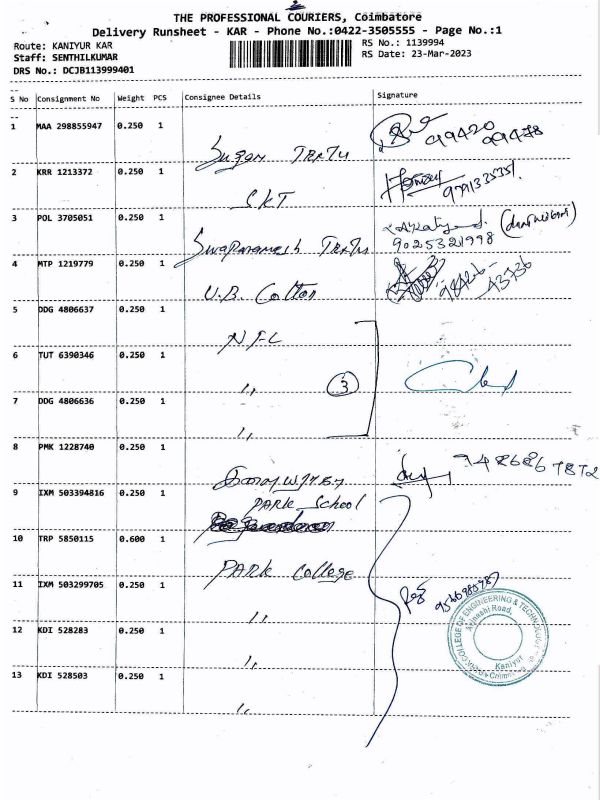 THE PROFESSIONAL COURIERS, Coimbatore
Delivery Runsheet - KAR - Phone No.:0422-3505555 - Page No.:1
Route: KANIYUR KAR
RS No.: 1139994
Staff: SENTHILKUMAR
RS Date: 23-Mar-2023
DRS No.: DCJB113999401
S No Consignment No Weight PCS Consignee Details Signature
1 MAA 298855947 0.250 1
99420 99478
2 KRR 1213372 0.250 1
CKT
3 POL 3705051 0.250 1
9025321998
4 MTP 1219779 0.250 1
U.B. Cotton
98426-43736
5 DDG 4806637 0.250 1
NFC
6 TUT 6390346 0.250 1
,, 3
7 DDG 4806636 0.250 1
,,
8 PMK 1228740 0.250 1
9 IXM 503394816 0.250 1
PARK School
10 TRP 5850115 0.600 1
PARK College
11 IXM 503299705 0.250 1
,,
12 KDI 528283 0.250 1
,,
13 KDI 528503 0.250 1
,,
COLLEGE OF ENGINEERING & TECHNOLOGY
Avinashi Road,
Kaniyur